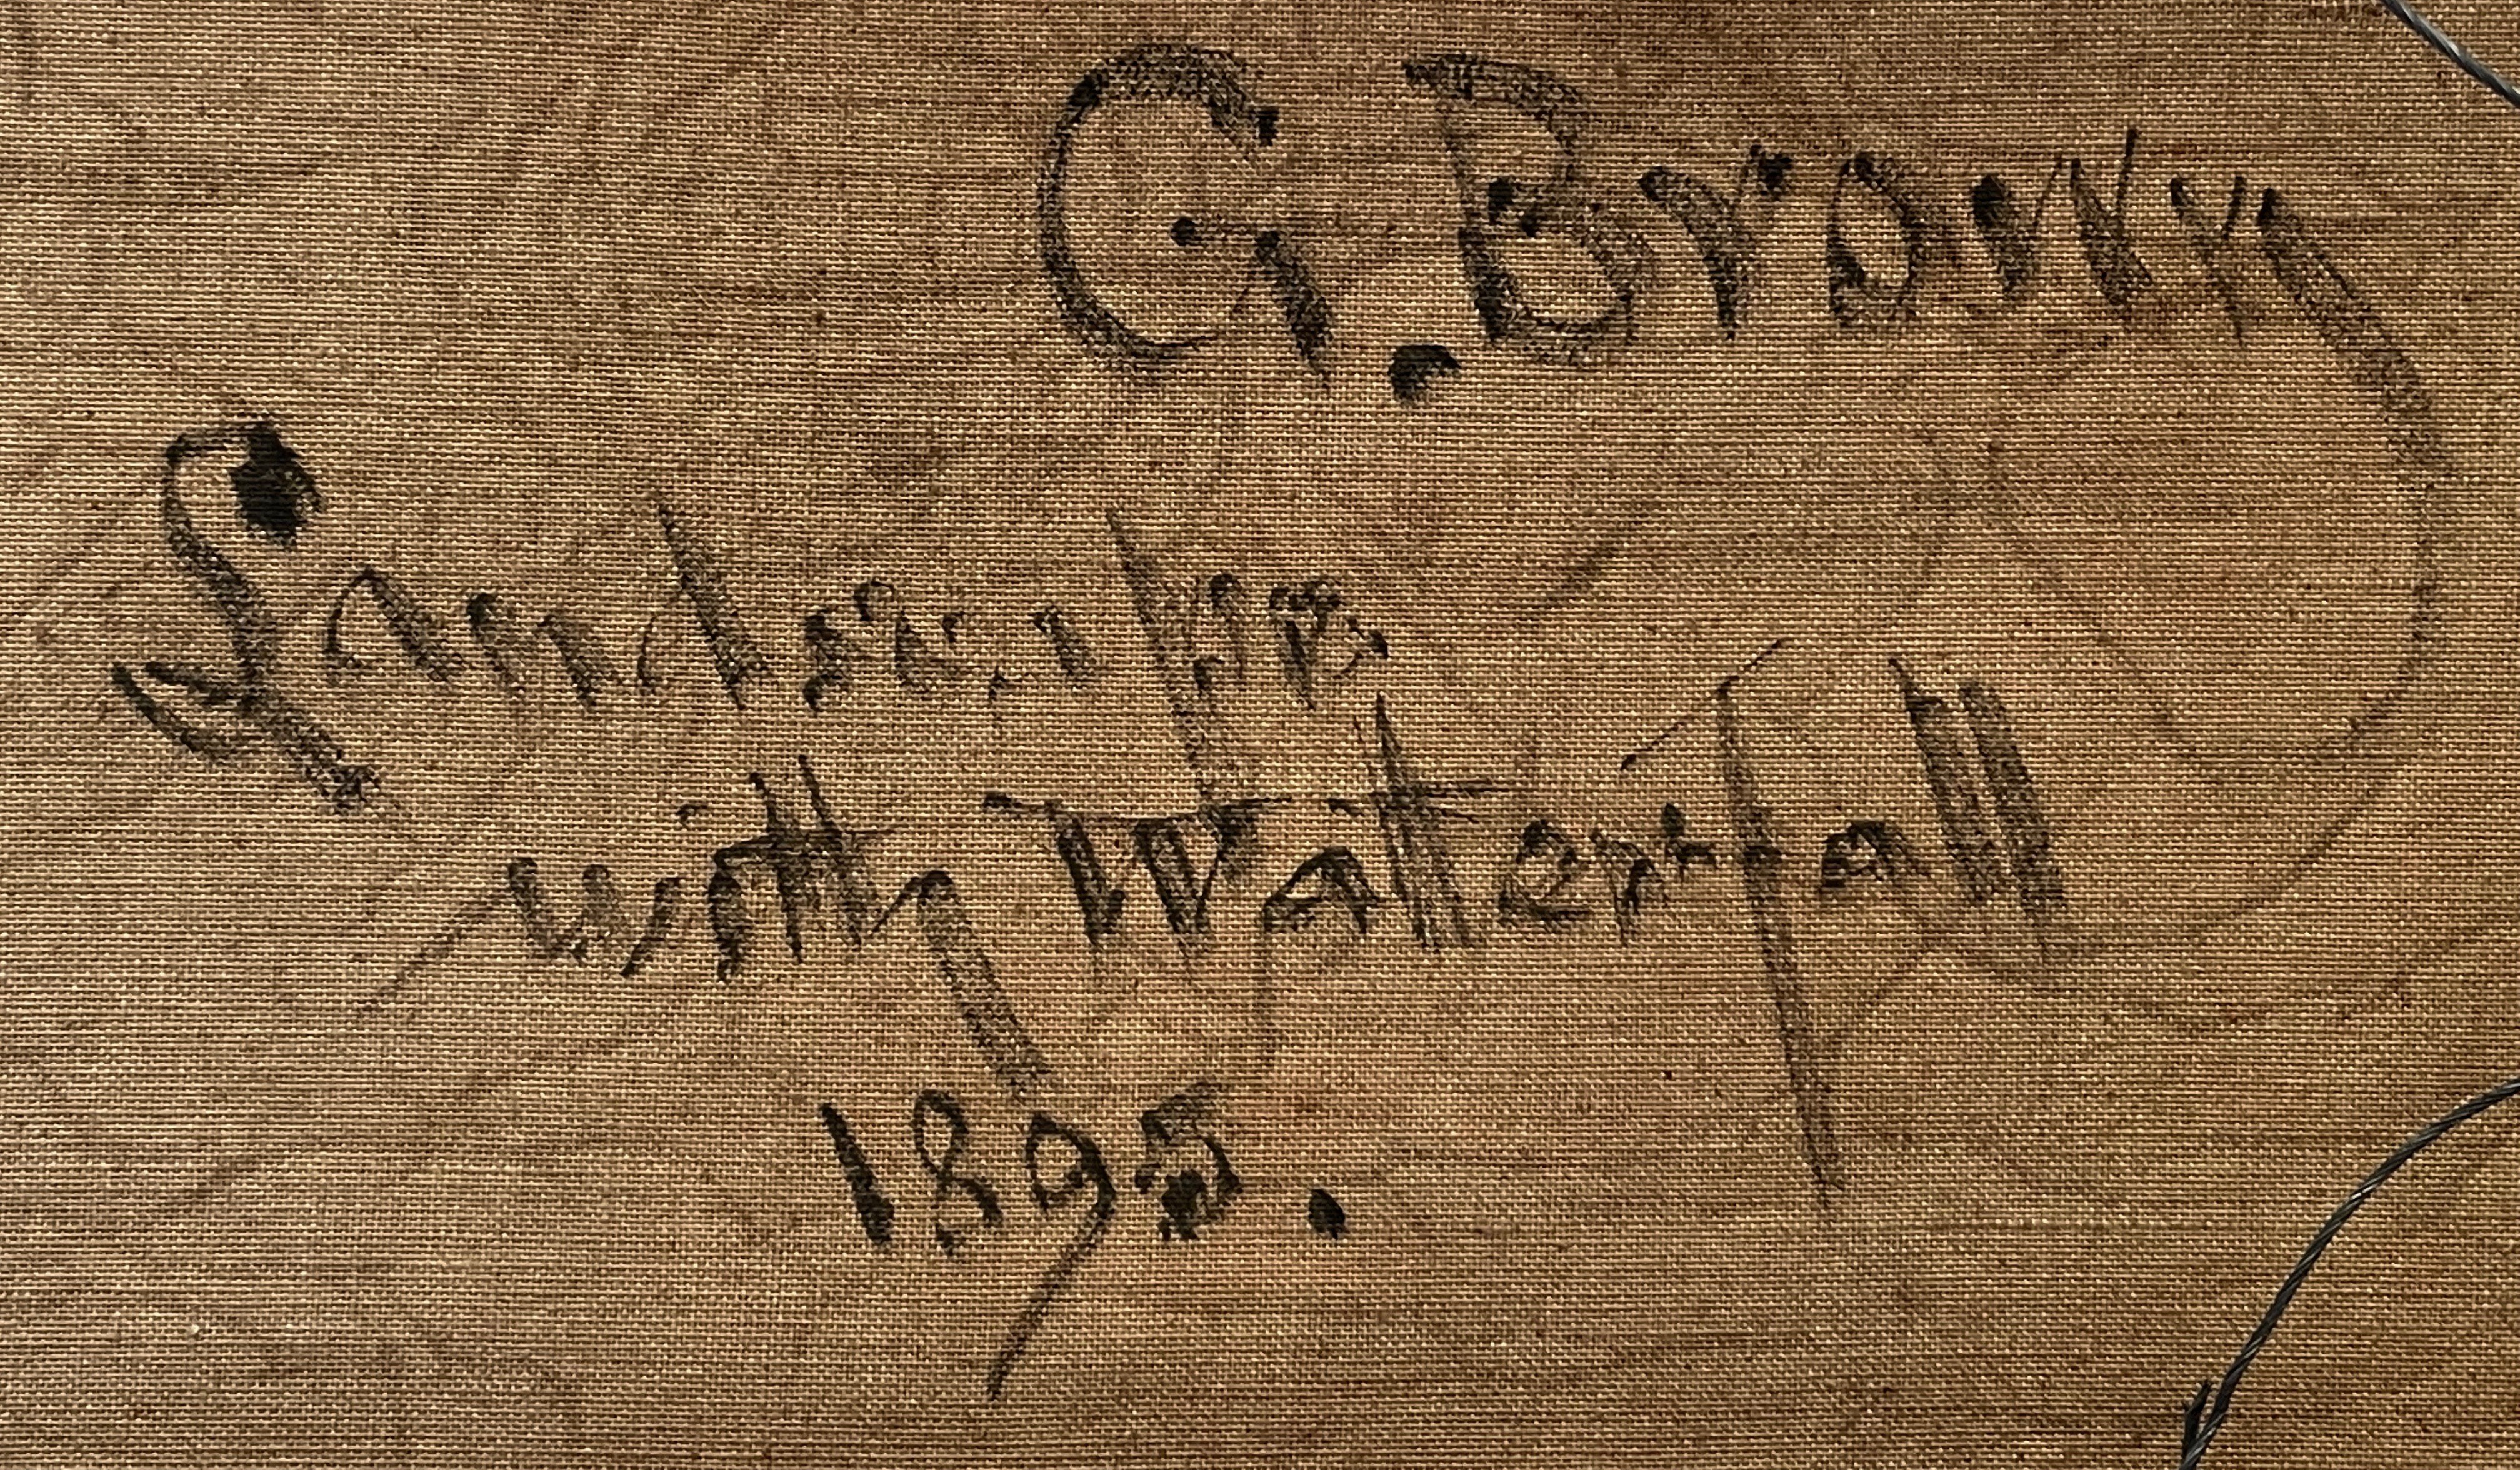 G. Brown
Landscape
with Waterfall
1895.